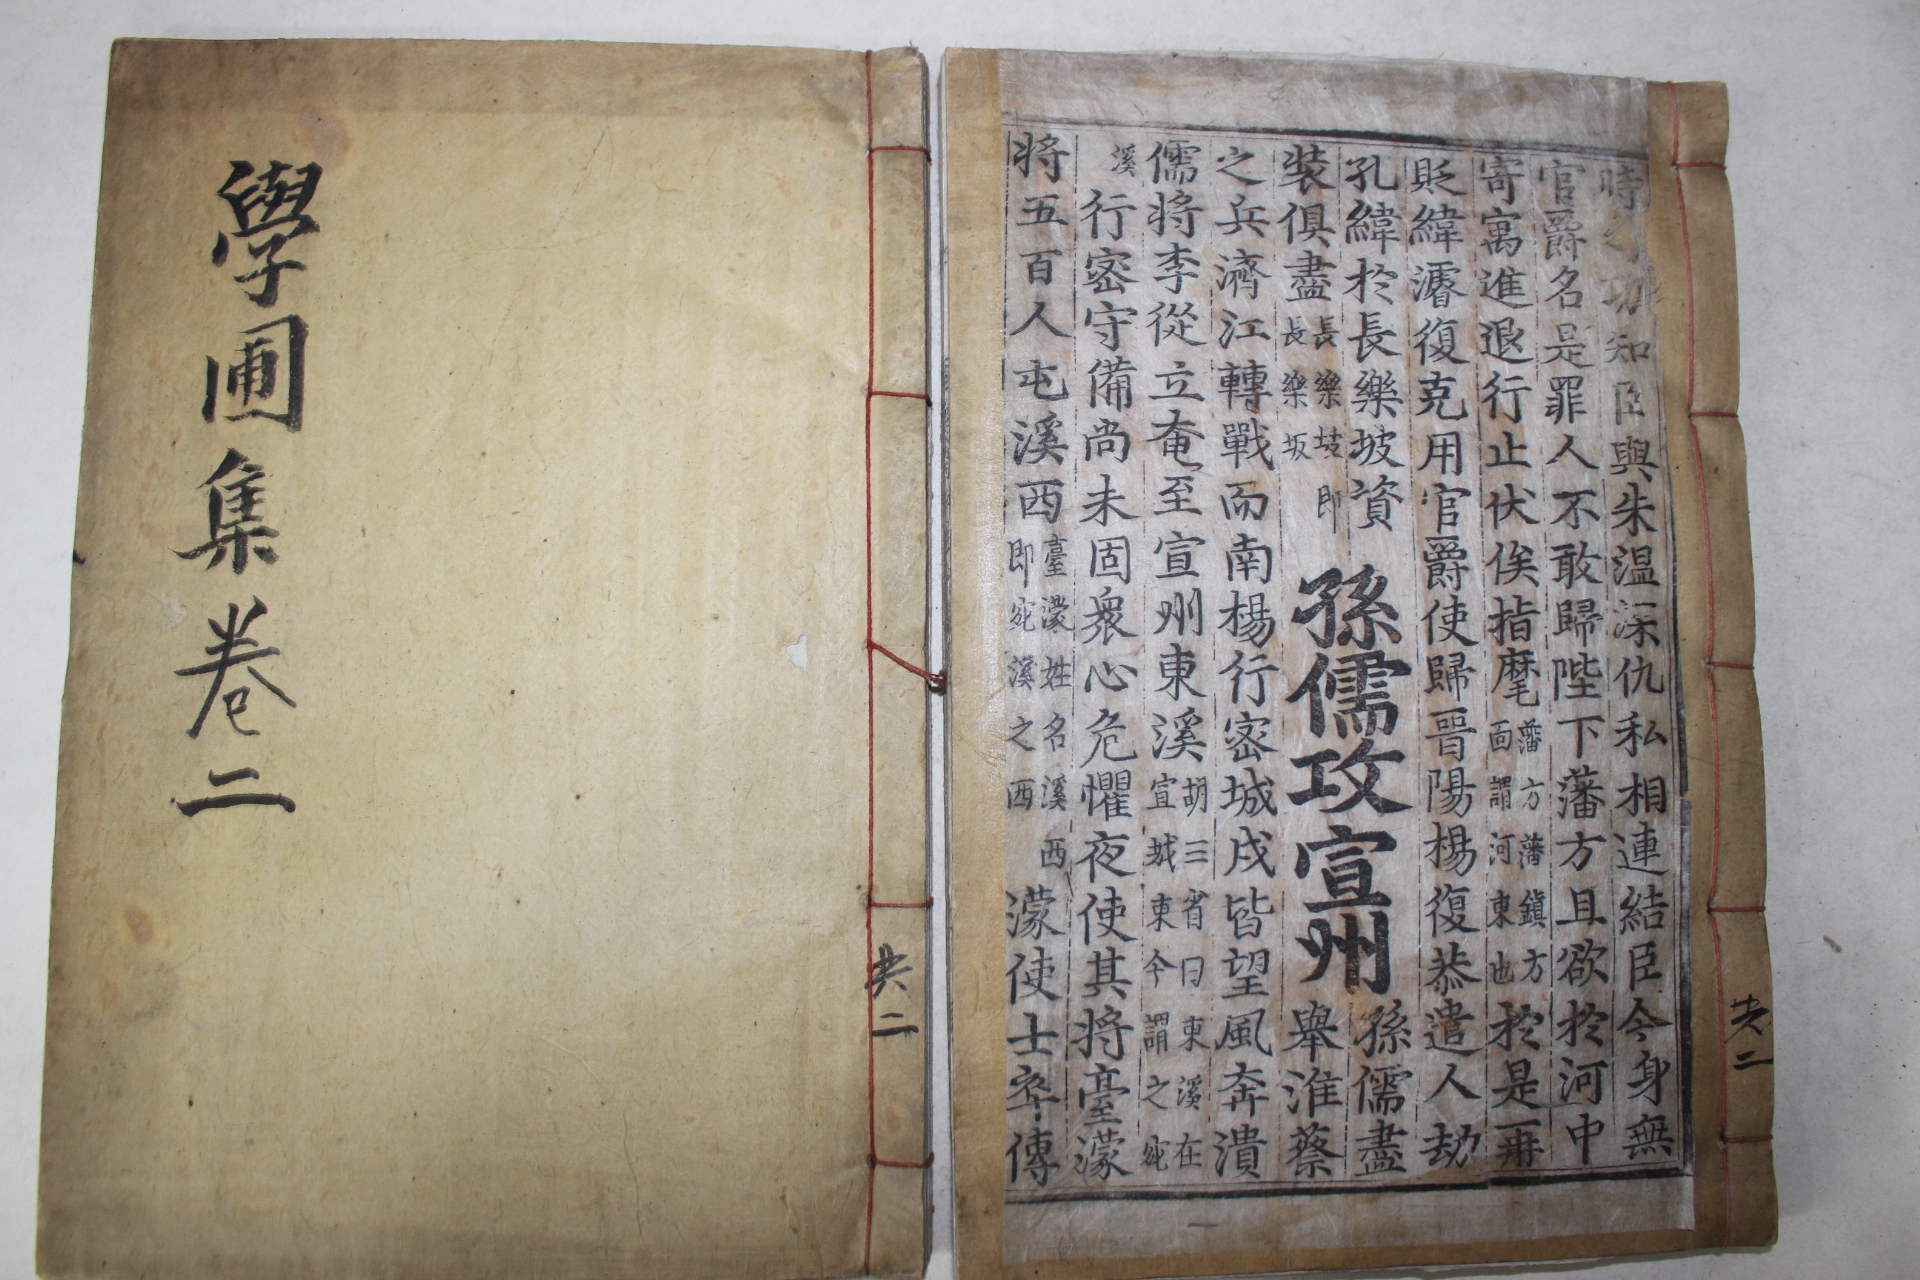 學圃集卷二
共二
時功知臣與朱温深仇私相連結臣今身無
官爵名是罪人不敢歸陛下藩方且欲於河中
寄寓進退行止伏俟指麾藩方藩鎮方面謂河東也於是再
貶緯濬復克用官爵使歸晉陽楊復恭遣人劫
孔緯於長樂坡資
裝俱盡長樂坡即長樂坂
孫儒攻宣州
孫儒盡
舉淮蔡
之兵濟江轉戰而南楊行密城戍皆望風奔潰
儒將李從立奄至宣州東溪胡三省曰東溪在宣城東今謂之宛
溪行密守備尚未固衆心危懼夜使其將臺濛
將五百人屯溪西臺濛姓名溪西即宛溪之西濛使士卒傳
共二